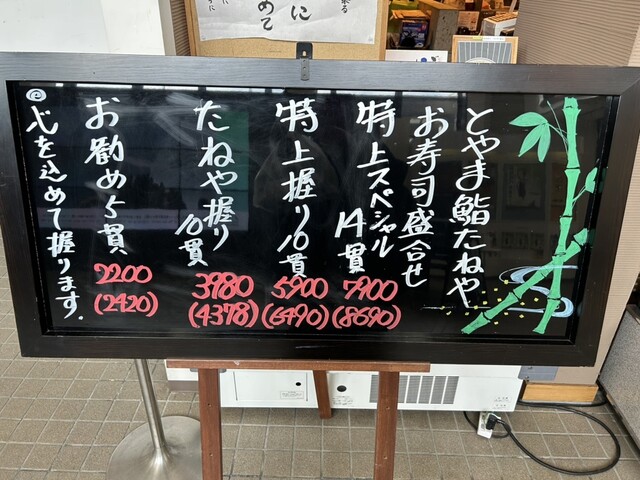 とやま鮨たねや
お寿司盛合せ
特上スペシャル
14貫
7900
(8690)
特上握り10貫
5900
(6490)
たねや握り
10貫
3980
(4378)
お勧め5貫
2200
(2420)
心を込めて握ります.